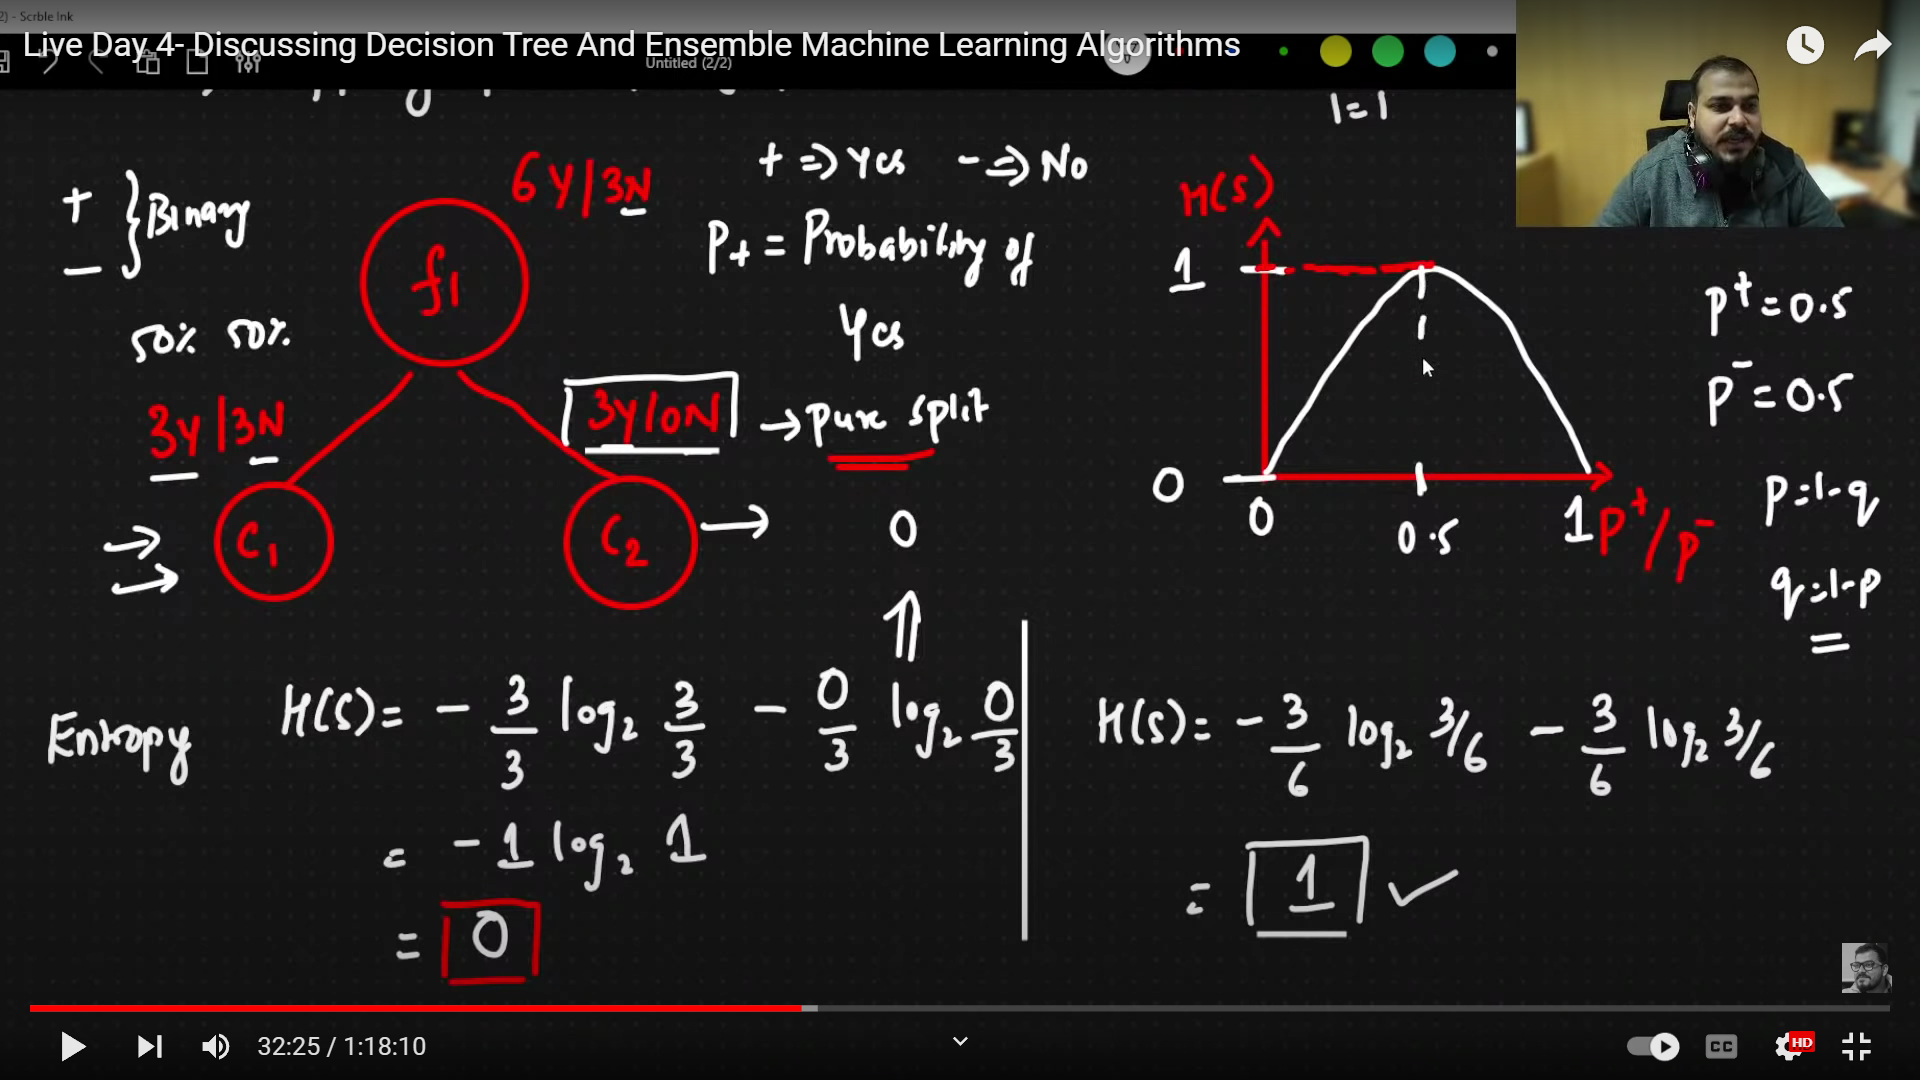 2) - Scrble Ink
Live Day 4- Discussing Decision Tree And Ensemble Machine Learning Algorithms
Untitled (2/2)
1=1
+
-
} Binary
50% 50%
6Y/3N
f1
+ => Yes - => No
P+ = Probability of
Yes
3Y/3N
3Y/0N → Pure split
C1
C2 → 0
H(S)
1
0
0
0.5
1
P+/P-
P+ = 0.5
P- = 0.5
P=1-q
q=1-P
Entropy
H(S)= - 3/3 log2 3/3 - 0/3 log2 0/3
= -1 log2 1
= 0
H(S)= - 3/6 log2 3/6 - 3/6 log2 3/6
= 1 ✓
32:25 / 1:18:10
CC
HD